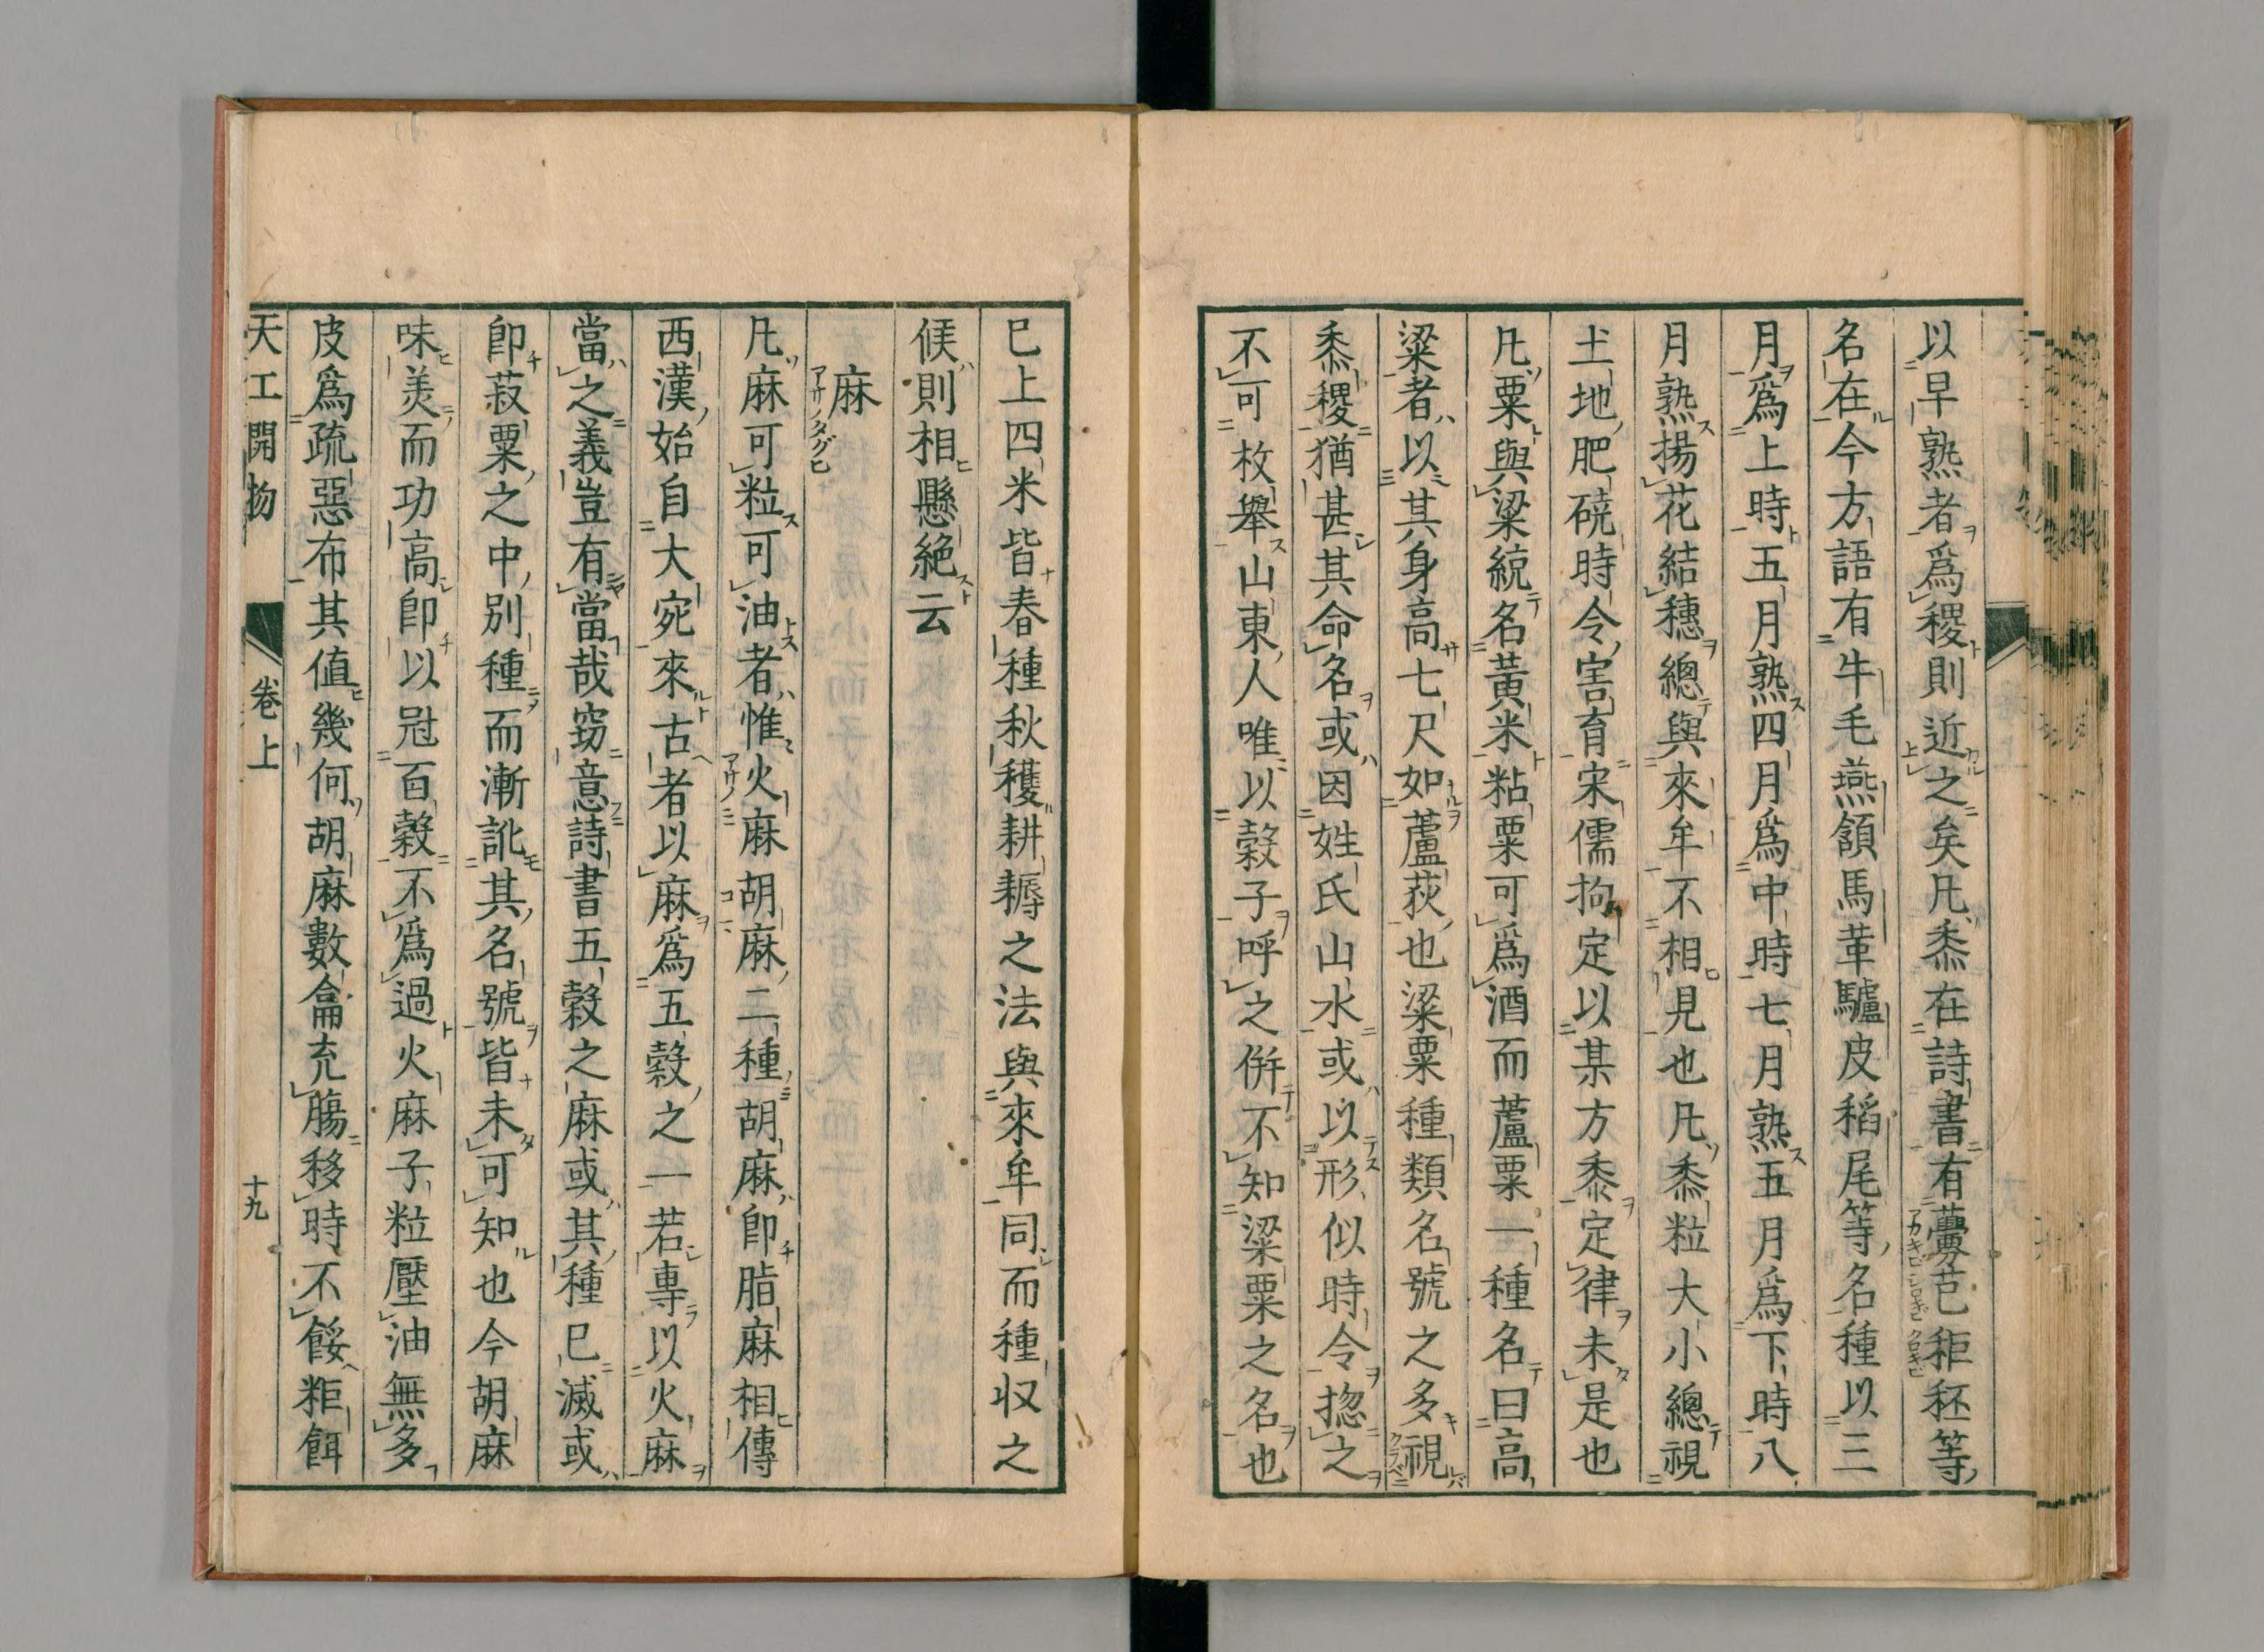 以早熟者爲稷則近之矣凡黍在詩書有虋芑秬秠等
名在今方語有牛毛燕頷馬革驢皮稻尾等名種以三
月爲上時五月熟四月爲中時七月熟五月爲下時八
月熟揚花結穗總與來牟不相見也凡黍粒大小總視
土地肥磽時令害育宋儒拘定以某方黍定律未是也
凡粟與粱綂名黃米粘粟可爲酒而蘆粟一種名曰高
粱者以其身高七尺如蘆荻也粱粟種類名號之多視
黍稷猶甚其命名或因姓氏山水或以形似時令揔之
不可枚舉山東人唯以穀子呼之併不知粱粟之名也
已上四米皆春種秋穫耕耨之法與來牟同而種収之
候則相懸絶云
麻
凡麻可粒可油者惟火麻胡麻二種胡麻卽脂麻相傳
西漢始自大宛來古者以麻爲五穀之一若專以火麻
當之義豈有當哉窃意詩書五穀之麻或其種已滅或
卽菽粟之中別種而漸訛其名號皆未可知也今胡麻
味羙而功高卽以冠百穀不爲過火麻子粒壓油無多
皮爲疏惡布其值幾何胡麻數龠充膓移時不餒粔餌
天工開物 卷上 十九